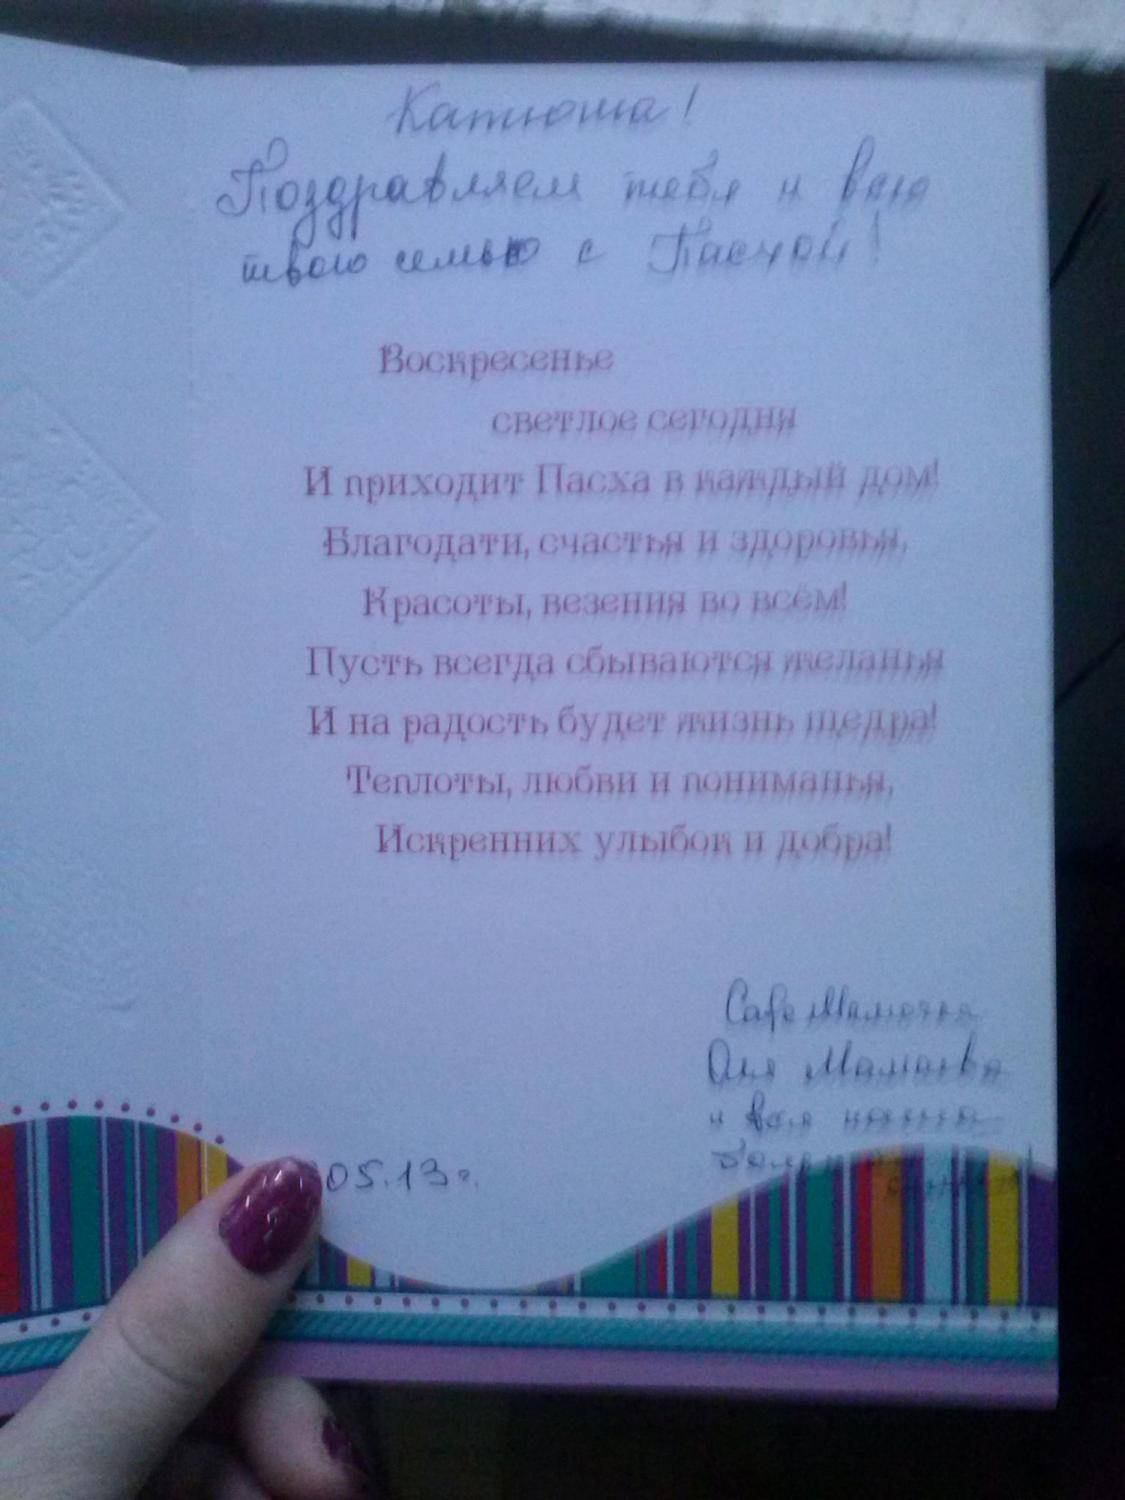 Катюша!
Поздравляем тебя и всю
твою семью с Пасхой!
Воскресенье
светлое сегодня
И приходит Пасха в каждый дом!
Благодати, счастья и здоровья,
Красоты, везения во всём!
Пусть всегда сбываются желанья
И на радость будет жизнь щедра!
Теплоты, любви и пониманья,
Искренних улыбок и добра!
Оля Мамаева
и вся наша
05.13г.